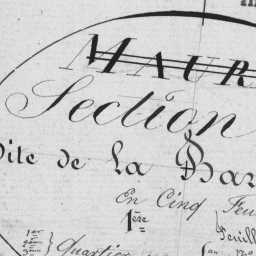 MAUR
Section
Dite de La Bar
En Cinq Feu
1ère
Feuill
1er
2ème
3ème
Quartier